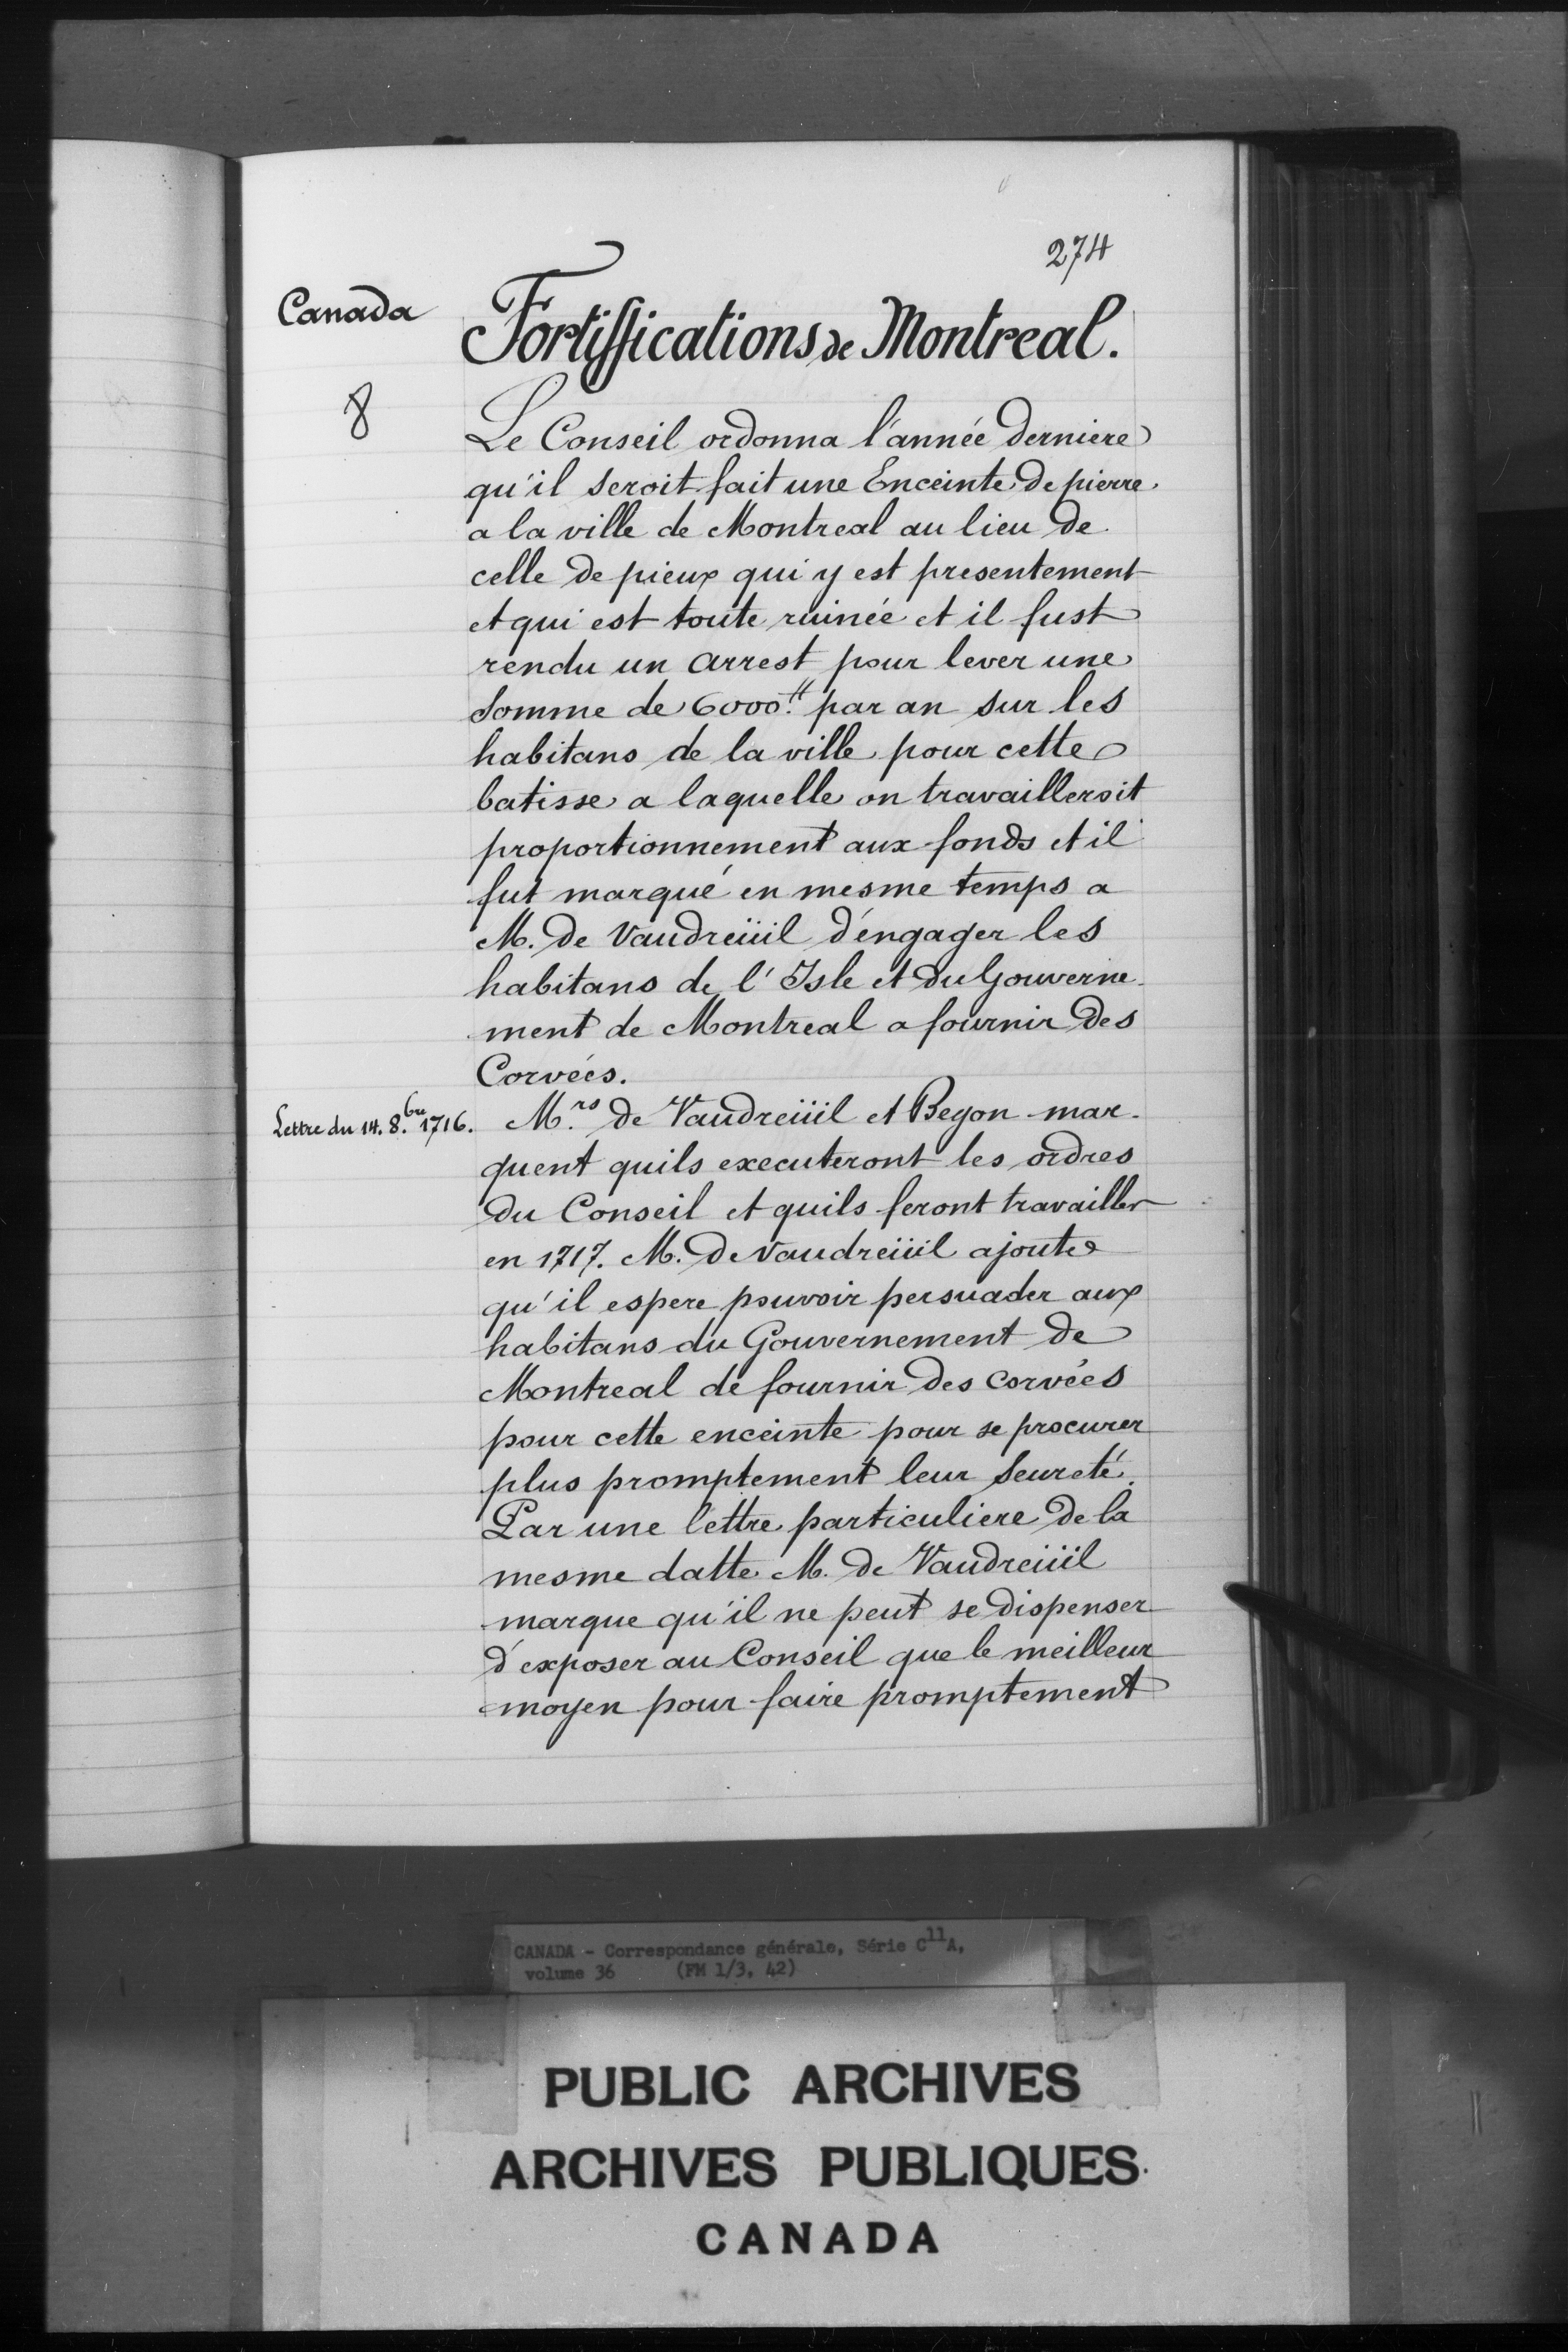 274
Canada
Fortiffications de Montreal.
8
Le Conseil ordonna l'année derniere
qu'il seroit fait une Enceinte de pierre
a la ville de Montreal au lieu de
celle de pieux qui y est presentement
et qui est toute ruinée et il fust
rendu un arrest pour lever une
somme de 6000.tt par an sur les
habitans de la ville pour cette
batisse a laquelle on travailleroit
proportionnement aux fonds et il
fut marqué en mesme temps a
M. de Vaudreüil d'éngager les
habitans de l'Isle et du Gouverne-
ment de Montreal a fournir des
Corvées.
Lettre du 14. 8.bre 1716.
M.rs de Vaudreüil et Begon mar-
quent quils executeront les ordres
du Conseil et quils feront travailler
en 1717. M. de Vaudreüil ajoute
qu'il espere pouvoir persuader aux
habitans du Gouvernement de
Montreal de fournir des corvées
pour cette enceinte pour se procurer
plus promptement leur seureté.
Par une lettre particuliere de la
mesme datte M. de Vaudreüil
marque qu'il ne peut se dispenser
d'exposer au Conseil que le meilleur
moyen pour faire promptement
CANADA - Correspondance générale, Série C11A,
volume 36 (FM 1/3, 42)
PUBLIC ARCHIVES
ARCHIVES PUBLIQUES
CANADA